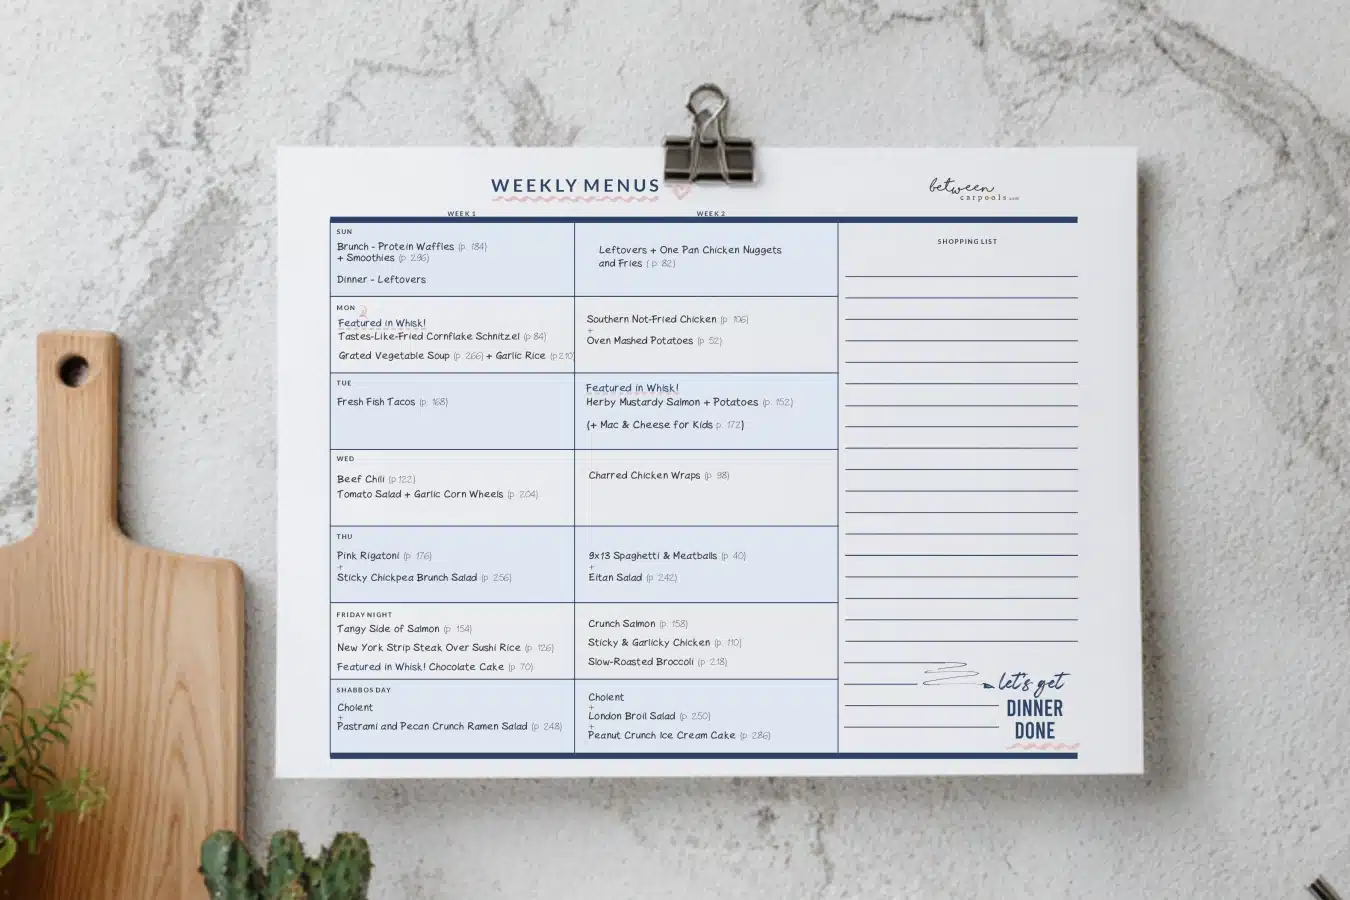 WEEKLY MENUS
between
carpools.com
WEEK 1
WEEK 2
SUN
Brunch - Protein Waffles (p. 184)
+ Smoothies (p. 296)
Dinner - Leftovers
Leftovers + One Pan Chicken Nuggets
and Fries ( p. 82)
MON
Featured in Whisk!
Tastes-Like-Fried Cornflake Schnitzel (p 84)
Grated Vegetable Soup (p. 266) + Garlic Rice (p 210)
Southern Not-Fried Chicken (p. 106)
+
Oven Mashed Potatoes (p. 52)
TUE
Fresh Fish Tacos (p. 168)
Featured in Whisk!
Herby Mustardy Salmon + Potatoes (p. 152)
(+ Mac & Cheese for Kids p. 172)
WED
Beef Chili (p 122)
Tomato Salad + Garlic Corn Wheels (p. 204)
Charred Chicken Wraps (p. 98)
THU
Pink Rigatoni (p. 176)
+
Sticky Chickpea Brunch Salad (p. 256)
9x13 Spaghetti & Meatballs (p. 40)
+
Eitan Salad (p. 242)
FRIDAY NIGHT
Tangy Side of Salmon (p. 154)
New York Strip Steak Over Sushi Rice (p. 126)
Featured in Whisk! Chocolate Cake (p. 70)
Crunch Salmon (p. 158)
Sticky & Garlicky Chicken (p. 110)
Slow-Roasted Broccoli (p. 218)
SHABBOS DAY
Cholent
+
Pastrami and Pecan Crunch Ramen Salad (p. 248)
Cholent
+
London Broil Salad (p. 250)
+
Peanut Crunch Ice Cream Cake (p. 286)
SHOPPING LIST
let's get
DINNER
DONE